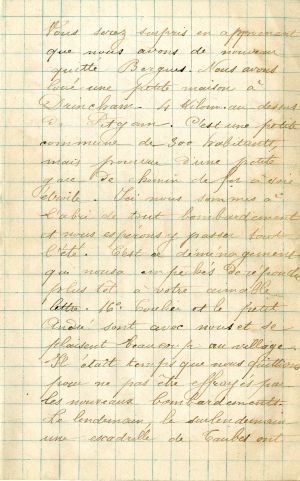 Vous serez surpris en apprenant
que nous avons de nouveau
quitté Bergues. Nous avons
loué une petite maison à
Drincham. 4 kilom. au dessus
de Pitgam. C'est une petite
commune de 300 habitants,
mais pourvue d'une petite
gare de chemin de fer à voie
étroite. Ici nous sommes à
l'abri de tout bombardement
et nous espérons y passer tout
l'été. C'est ce déménagement
qui nous a empêchés de répondre
plus tôt à votre aimable
lettre. Me et le petit
André sont avec nous et se
plaisent beaucoup au village.
Il était temps que nous quittions
pour ne pas être effrayés par
les nouveaux bombardements.
Le lendemain, le surlendemain
une escadrille de Taubes ont